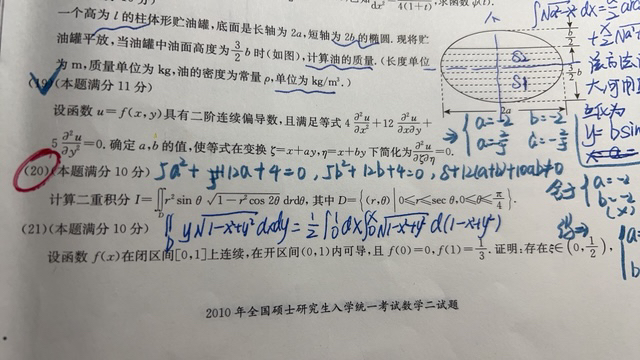 一个高为 l 的柱体形贮油罐,底面是长轴为 2a,短轴为 2b 的椭圆. 现将贮
油罐平放,当油罐中油面高度为 3/2 b 时(如图),计算油的质量. (长度单位
为 m,质量单位为 kg,油的密度为常量 ρ,单位为 kg/m³.)
(19)(本题满分 11 分)
设函数 u=f(x,y)具有二阶连续偏导数,且满足等式 4 ∂²u/∂x² +12 ∂²u/∂x∂y +
5 ∂²u/∂y² =0. 确定 a,b 的值,使等式在变换 ζ=x+ay,η=x+by 下简化为 ∂²u/∂ζ∂η =0.
(20)(本题满分 10 分) 5a²+12a+4=0, 5b²+12b+4=0, 8+12(a+b)+10ab≠0
计算二重积分 I=∬_D r² sin θ √(1-r² cos 2θ) drdθ, 其中 D={(r,θ) | 0≤r≤sec θ,0≤θ≤π/4}.
(21)(本题满分 10 分) ∬_D y√(1-x²+y²) dxdy = 1/2 ∫₀¹ dx ∫₀ˣ √(1-x²+y²) d(1-x²+y²)
设函数 f(x)在闭区间[0,1]上连续,在开区间(0,1)内可导,且 f(0)=0,f(1)=1/3. 证明:存在 ξ∈(0,1/2),
2010 年全国硕士研究生入学统一考试数学二试题
S2
S1
2a
b/2
y=bsin